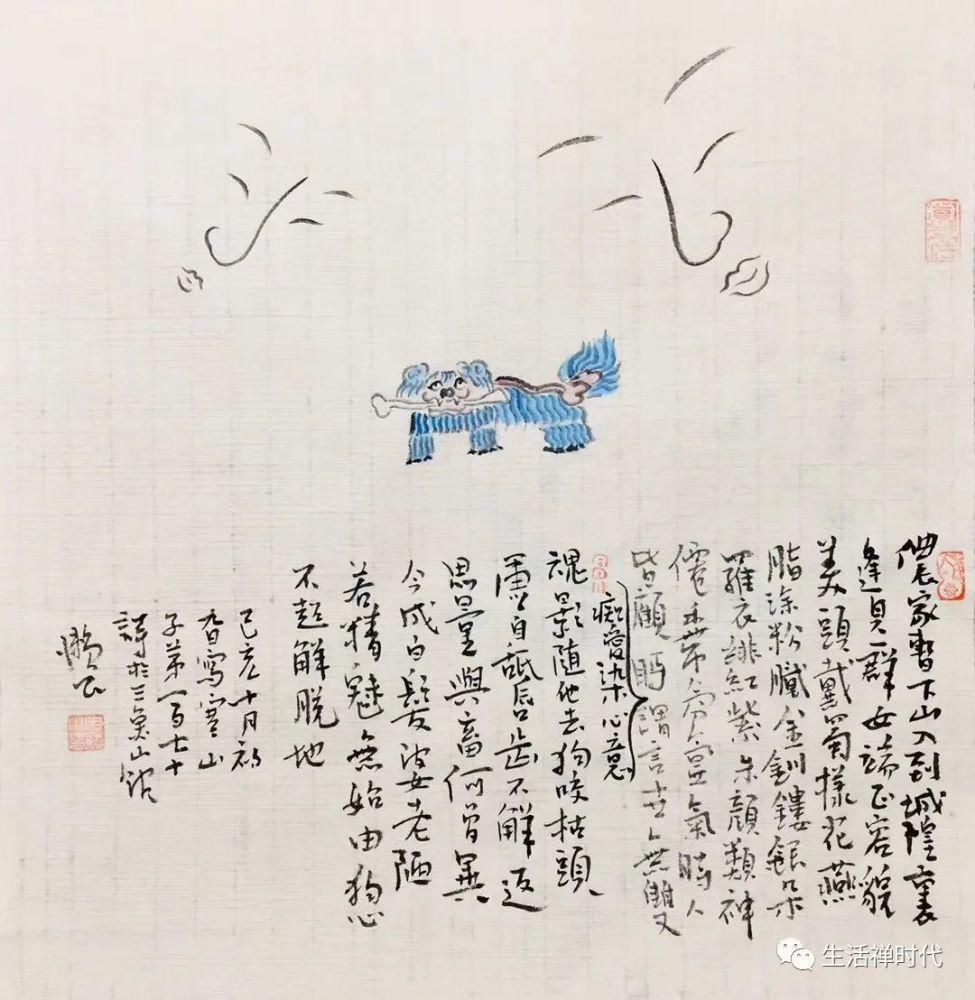 儂家暫下山入到城隍裏
逢見一群女端正容貌
美頭戴蜀樣花燕
脂塗粉膩金釧鏤銀朵
羅衣緋紅紫朱顏類神
僊香帶氛氳氣時人
皆顧眄謂言世無雙
癡愛染心意
魂影隨他去狗咬枯頭
虛自舐唇齒不解返
思量與畜何曾異
今成白髮婆老陋
若精魅無始由狗心
不超解脫地
己亥十月初
九日寫寒山
子第一百七十
詩於三魚山館
生活禅时代